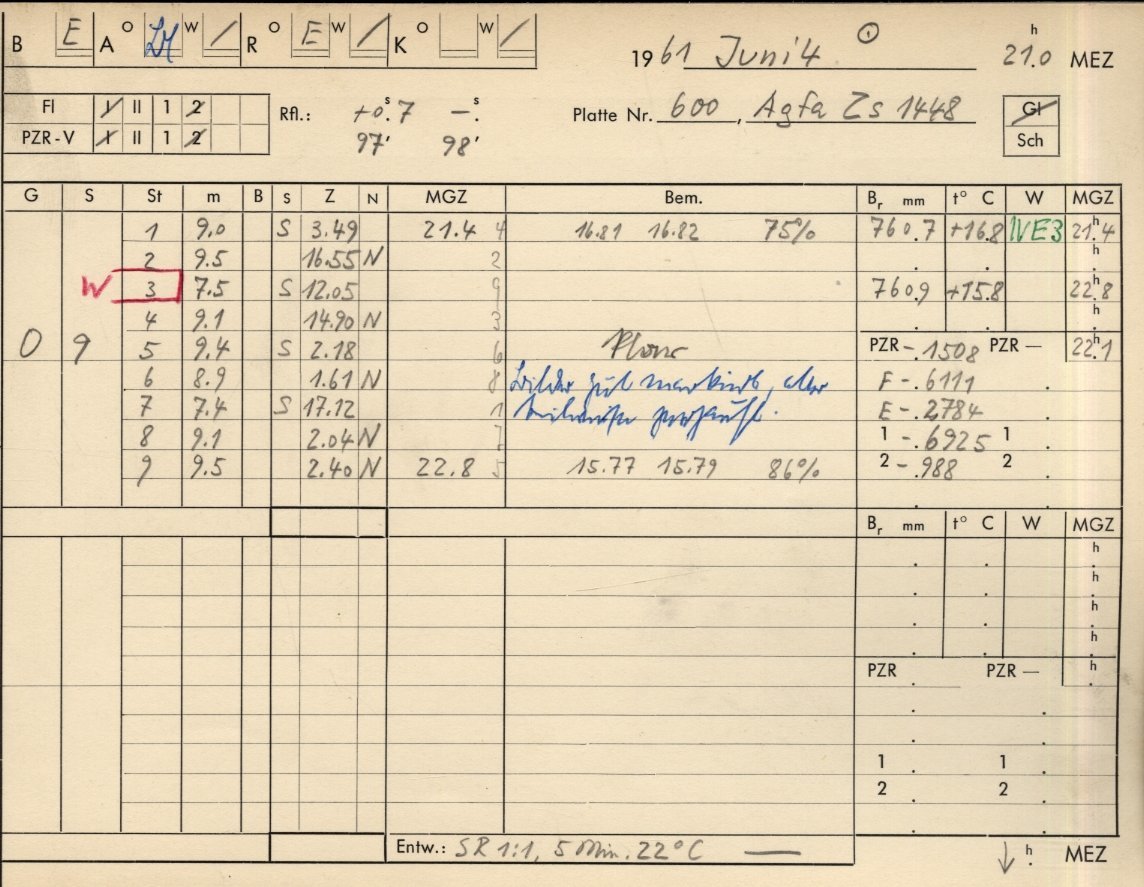 B E A O W / R O E W / K O W /
1961 Juni 4 ☉ 21.0 h MEZ
Fl I II 1 2
PZR-V I II 1 2
Rfl.: +0.7 s — . s
97' 98'
Platte Nr. 600, Agfa Zs 1448
Gl
Sch
G S St m B S Z N MGZ Bem. Br mm t° C W MGZ
1 9.0 S 3.49 21.4 4 16.81 16.82 75% 760.7 +16.8 WE3 21.4 h
2 9.5 16.55 N 2 h
W 3 7.5 S 12.05 9 760.9 +15.8 22.8 h
4 9.1 14.90 N 3 h
0 9 5 9.4 S 2.18 6 PZR -.1508 PZR — 22.1 h
6 8.9 1.61 N 8 Bilder gut, aber F -.6111
7 7.4 S 17.12 1 E -.2784
8 9.1 2.04 N 7 1 -.6925 1
9 9.5 2.40 N 22.8 5 15.77 15.79 86% 2 -.988 2
Br mm t° C W MGZ
h
h
h
h
PZR PZR — h
1 1
2 2
Entw.: SR 1:1, 5 Min. 22°C —
↓ h MEZ